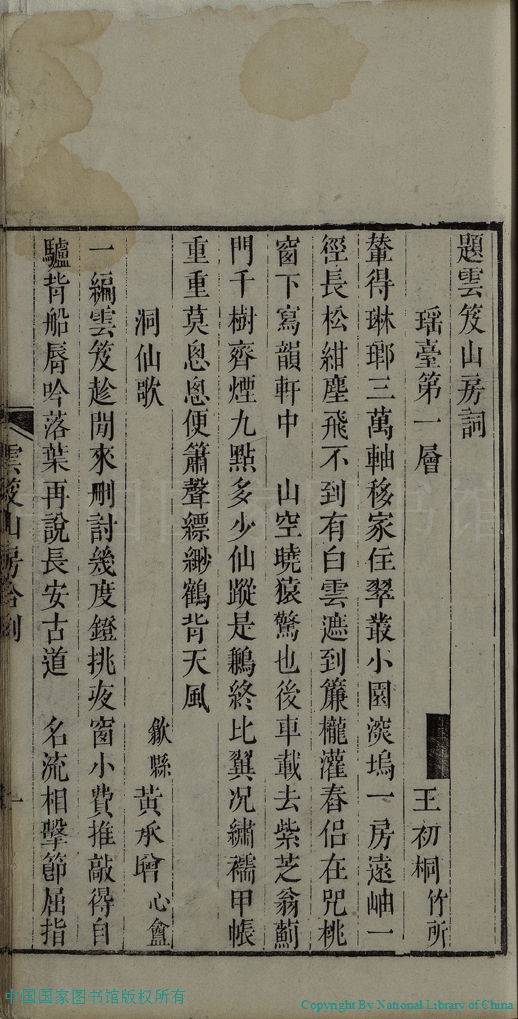 題雲笈山房詞
瑶臺第一層
王初桐竹所
輦得琳瑯三萬軸移家住翠叢小園深塢一房遠岫一
徑長松紺塵飛不到有白雲遮到簾櫳灌春侣在咒桃
窗下寫韻軒中　山空曉猿驚也後車載去紫芝翁薊
門千樹齊煙九點多少仙蹤是鶼終比翼况繡襦甲帳
重重莫悤悤便簫聲縹緲鶴背天風
洞仙歌
歙縣黃承增心盦
一編雲笈趁閒來刪討幾度鐙挑夜窗小費推敲得自
驢背船脣吟落葉再說長安古道　名流相擊節屈指
雲笈山房合刻
一
中国国家图书馆版权所有
Copyright By National Library of China